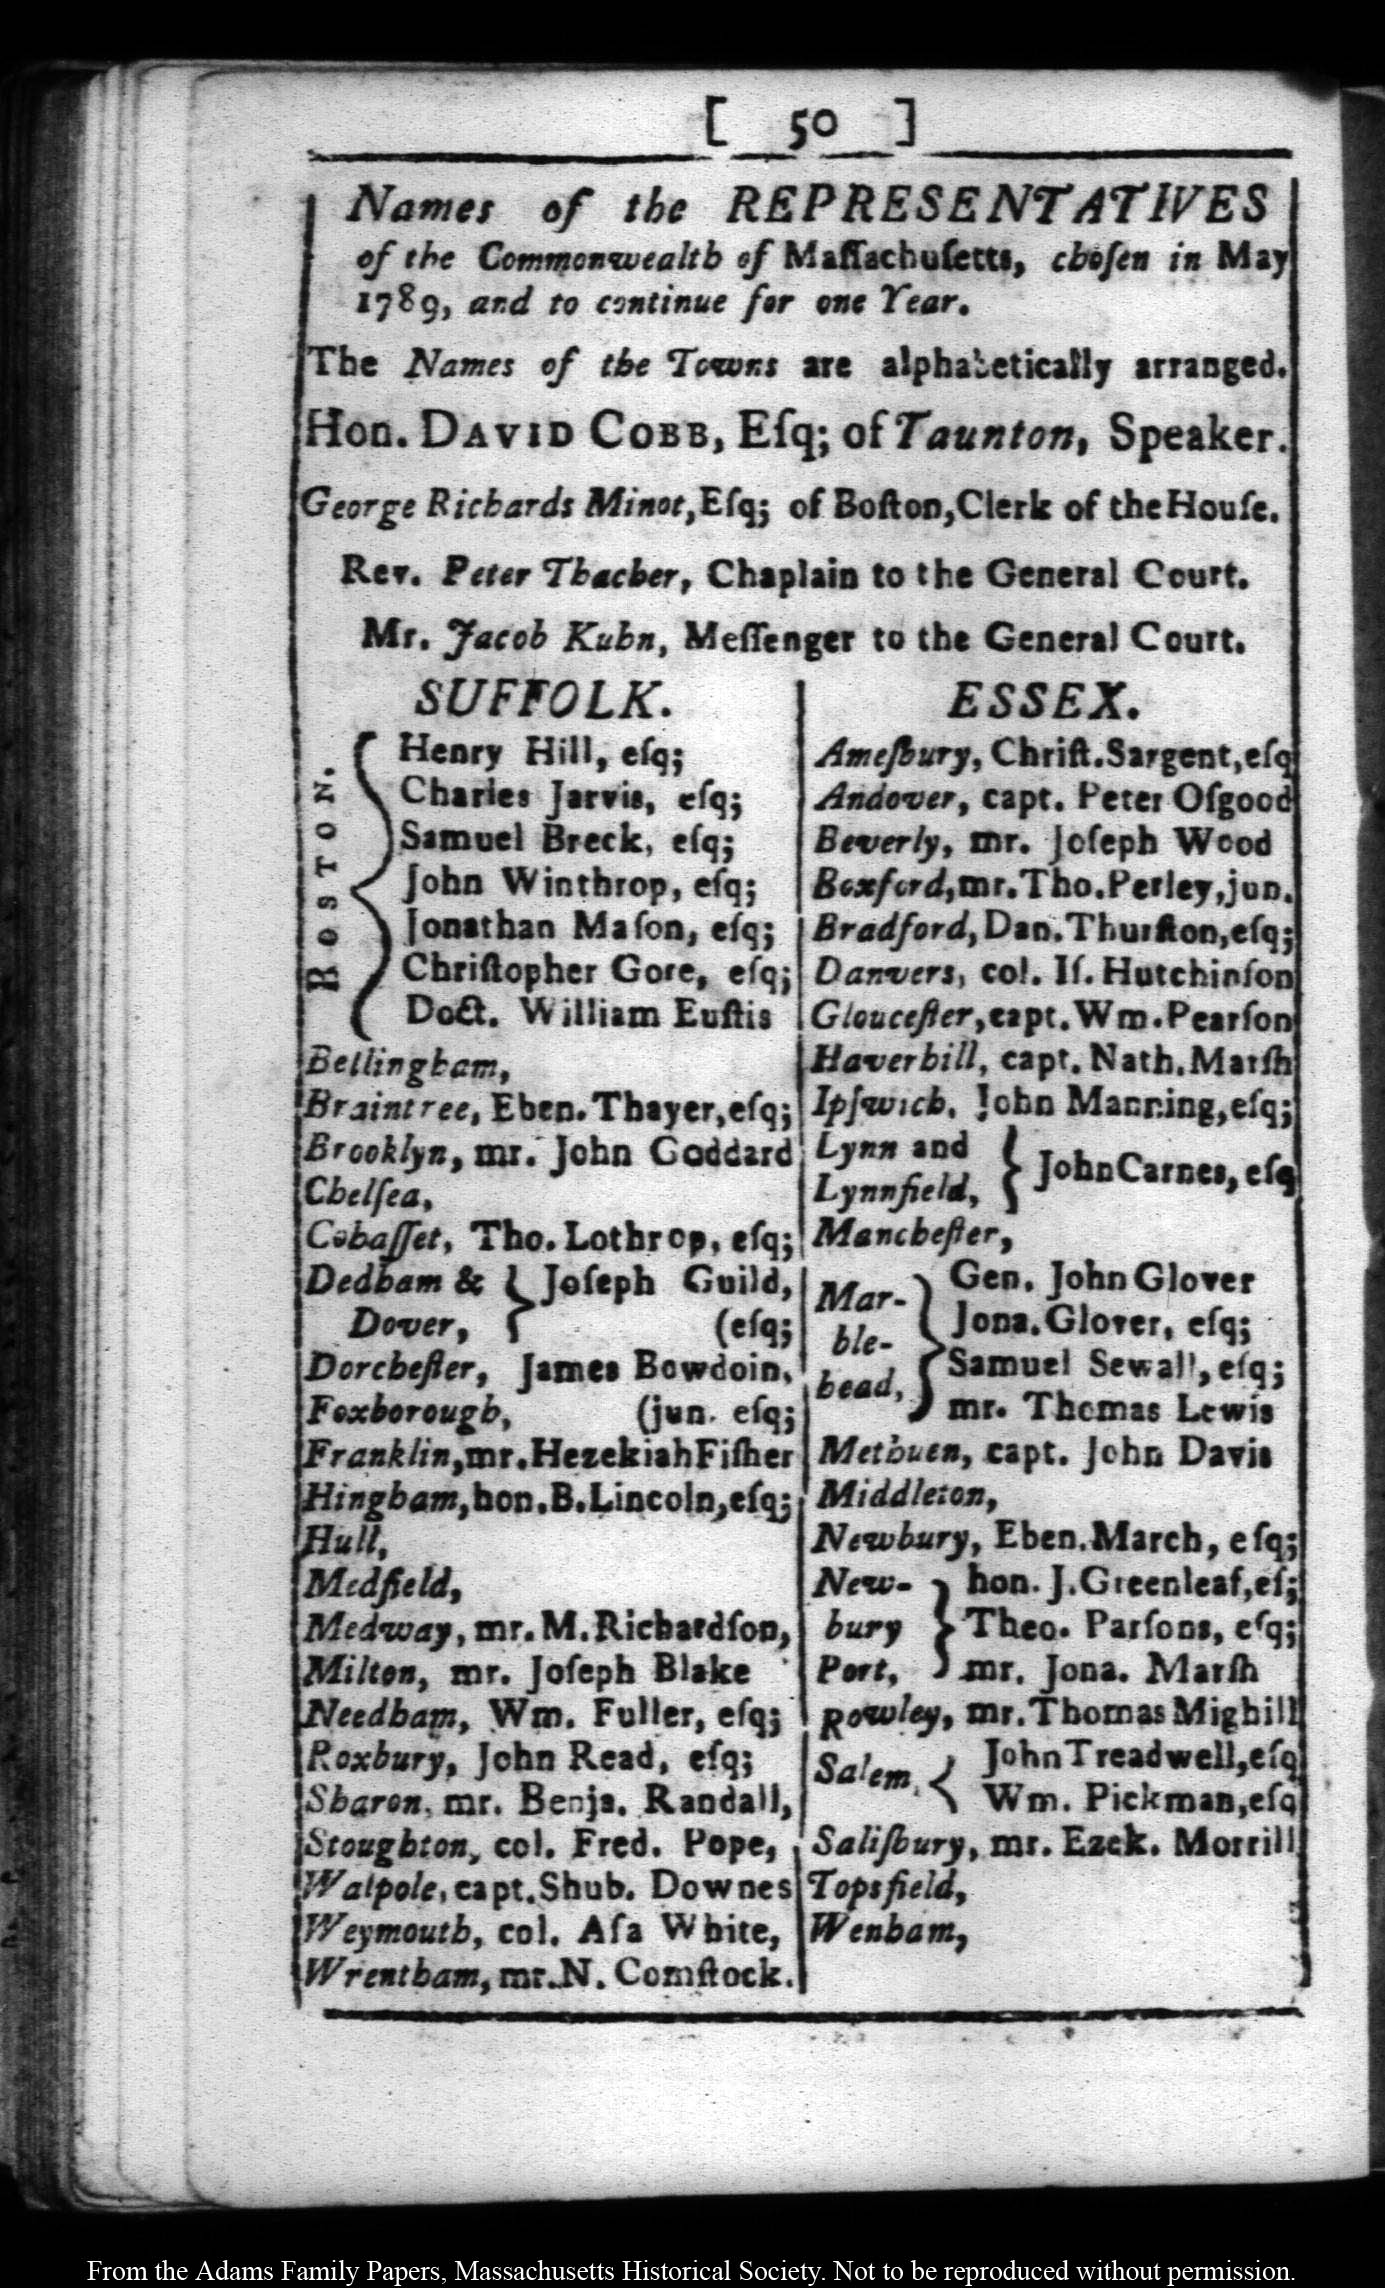 [ 50 ]
Names of the REPRESENTATIVES
of the Commonwealth of Maſſachuſetts, choſen in May
1789, and to continue for one Year.
The Names of the Towns are alphabetically arranged.
Hon. DAVID COBB, Eſq; of Taunton, Speaker.
George Richards Minot, Eſq; of Boſton, Clerk of the Houſe.
Rev. Peter Thacher, Chaplain to the General Court.
Mr. Jacob Kuhn, Meſſenger to the General Court.
SUFFOLK.
BOSTON.
Henry Hill, eſq;
Charles Jarvis, eſq;
Samuel Breck, eſq;
John Winthrop, eſq;
Jonathan Maſon, eſq;
Chriſtopher Gore, eſq;
Doct. William Euſtis
Bellingham,
Braintree, Eben. Thayer, eſq;
Brooklyn, mr. John Goddard
Chelſea,
Cohaſſet, Tho. Lothrop, eſq;
Dedham & } Joſeph Guild,
Dover, (eſq;
Dorcheſter, James Bowdoin,
Foxborough, (jun. eſq;
Franklin, mr. Hezekiah Fiſher
Hingham, hon. B. Lincoln, eſq;
Hull,
Medfield,
Medway, mr. M. Richardſon,
Milton, mr. Joſeph Blake
Needham, Wm. Fuller, eſq;
Roxbury, John Read, eſq;
Sharon, mr. Benja. Randall,
Stoughton, col. Fred. Pope,
Walpole, capt. Shub. Downes
Weymouth, col. Aſa White,
Wrentham, mr. N. Comſtock.
ESSEX.
Ameſbury, Chriſt. Sargent, eſq
Andover, capt. Peter Oſgood
Beverly, mr. Joſeph Wood
Boxford, mr. Tho. Perley, jun.
Bradford, Dan. Thurſton, eſq;
Danvers, col. Iſ. Hutchinſon
Glouceſter, capt. Wm. Pearſon
Haverhill, capt. Nath. Marſh
Ipſwich, John Manning, eſq;
Lynn and
Lynnfield, } John Carnes, eſq
Mancheſter,
Mar-
ble-
head,
Gen. John Glover
Jona. Glover, eſq;
Samuel Sewall, eſq;
mr. Thomas Lewis
Methuen, capt. John Davis
Middleton,
Newbury, Eben. March, eſq;
New- } hon. J. Greenleaf, eſ;
bury Theo. Parſons, eſq;
Port, mr. Jona. Marſh
Rowley, mr. Thomas Mighill
Salem, { John Treadwell, eſq
Wm. Pickman, eſq
Saliſbury, mr. Ezek. Morrill
Topsfield,
Wenham,
From the Adams Family Papers, Massachusetts Historical Society. Not to be reproduced without permission.